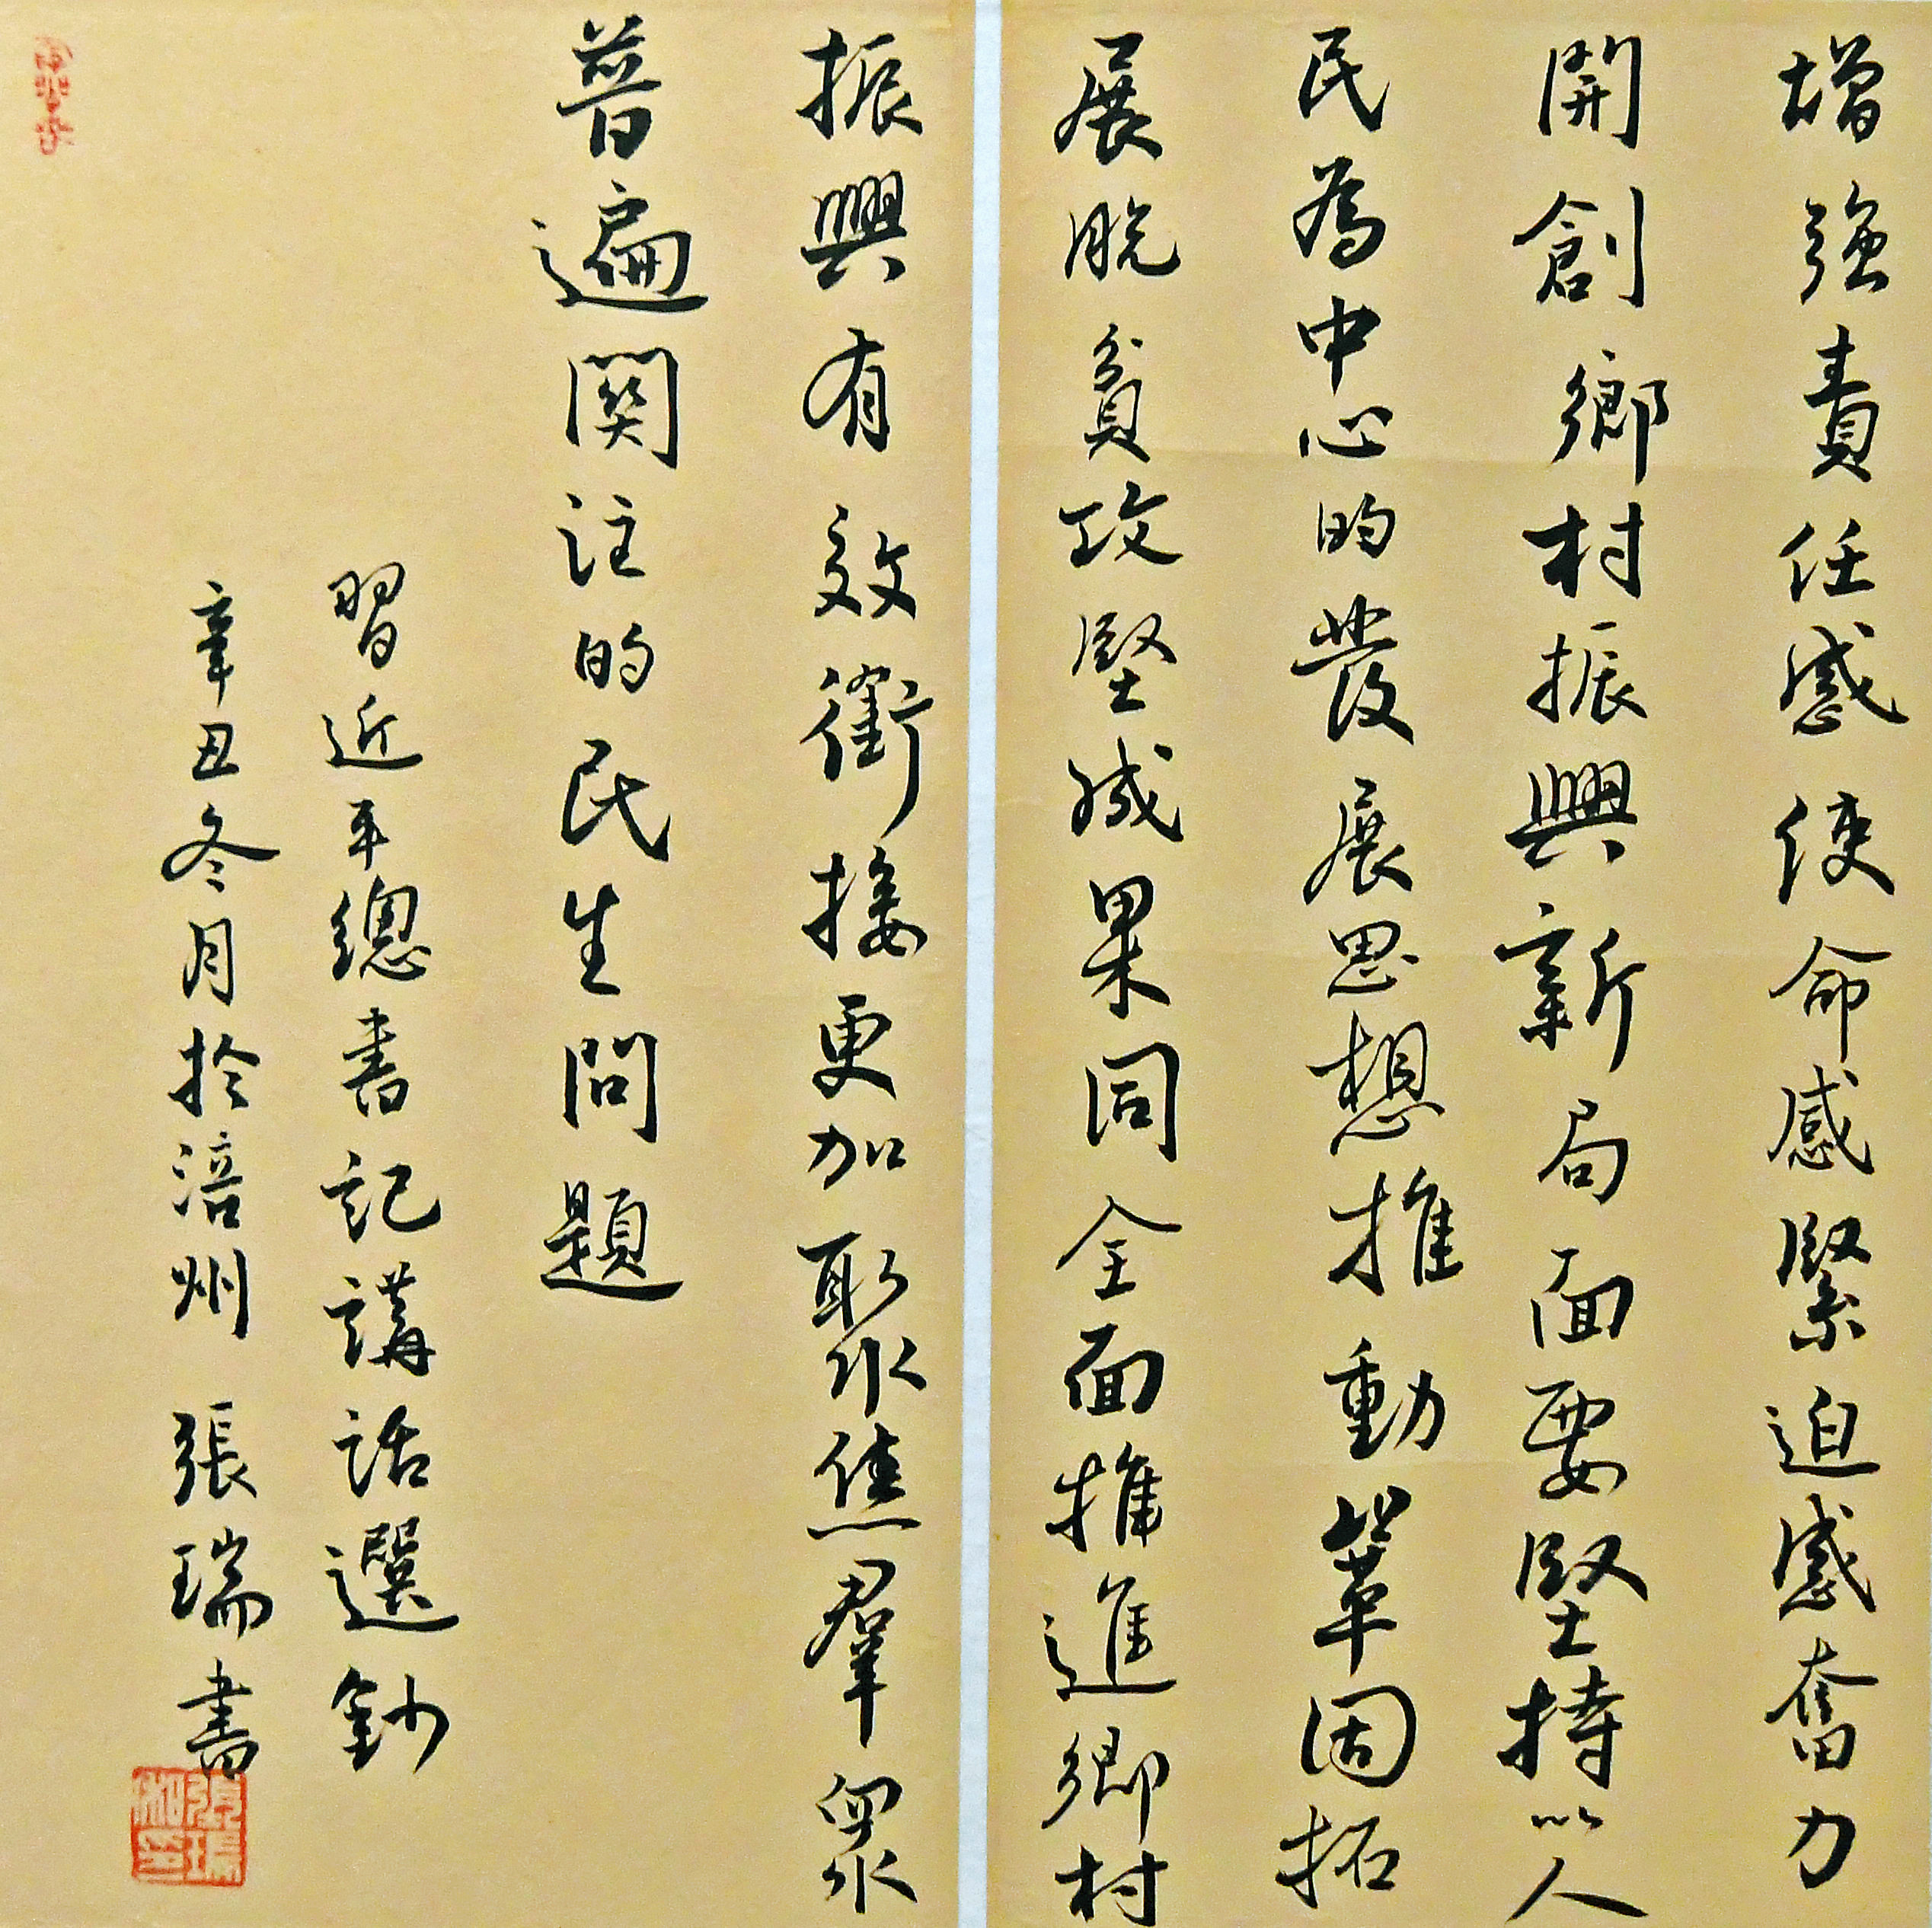 增強責任感使命感緊迫感奮力
開創鄉村振興新局面要堅持以人
民為中心的發展思想推動鞏固拓
展脫貧攻堅成果同全面推進鄉村
振興有效銜接更加聚焦羣眾
普遍關注的民生問題
習近平總書記講話選鈔
辛丑冬月於涪州 張瑞書